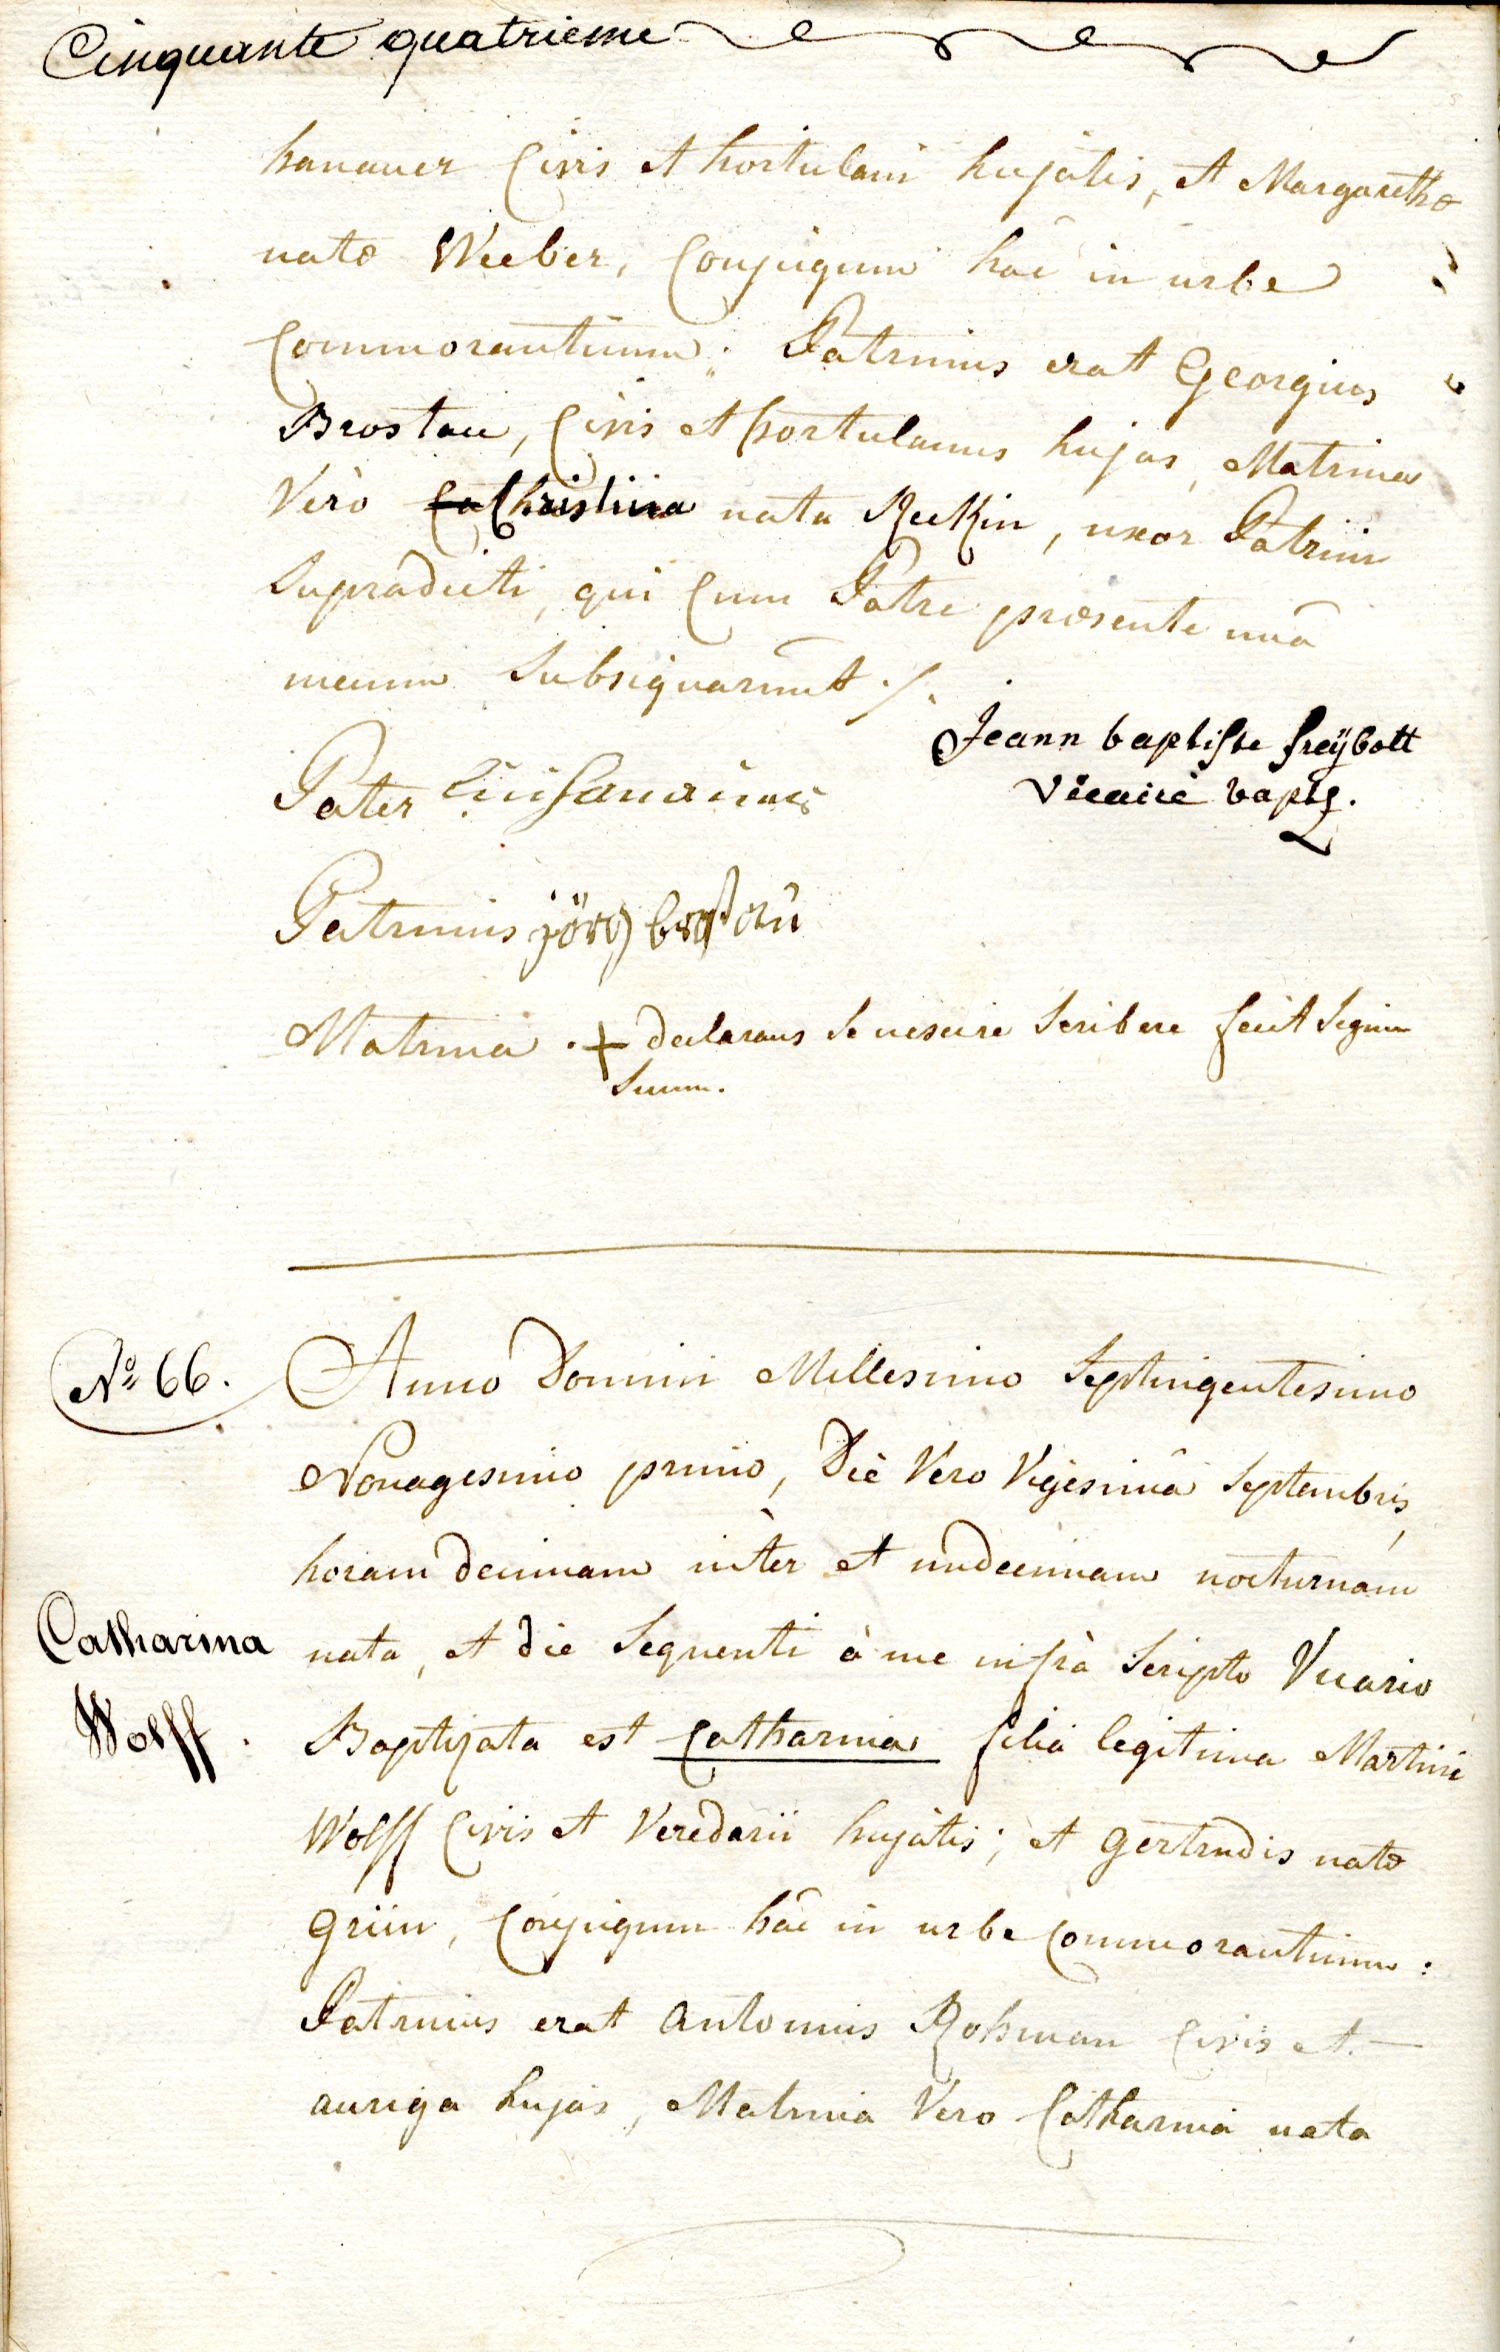 Cinquante quatrieme
hanauer Civis et hortulani hujatis, et Margarethæ
natæ Weeber, Conjugum hâc in urbe
Commorantium: Patrinus erat Georgius
Brostau, Civis et hortulanus hujas, Matrina
Verò Ca Christina nata ReeKin, uxor Patrini
Supradicti, qui Cum Patre præsente unâ
mecum Subsignarunt ./.
Jeann baptiste freÿbott
vicaire bapts.
Pater
Patrinus jörg brostaŭ
Matrina + declarans Se nescire Scribere fecit Signum
Suum.
No 66.
Anno Domini Millesimo Septingentesimo
Nonagesimo primo, Diè Vero Vigesimâ Septembris,
horam decimam intèr et undecimam nocturnam
Catharina
nata, et die Sequenti à me infrà Scripto Vicario
Wolff.
Baptizata est Catharina filia legitima Martini
Wolff Civis et Veredarii hujàtis; et gertrudis natæ
grün, Conjugum hâc in urbe Commorantium:
Patrinus erat antonius Rohman Civis et
auriga hujas, Matrina Vero Catharina nata